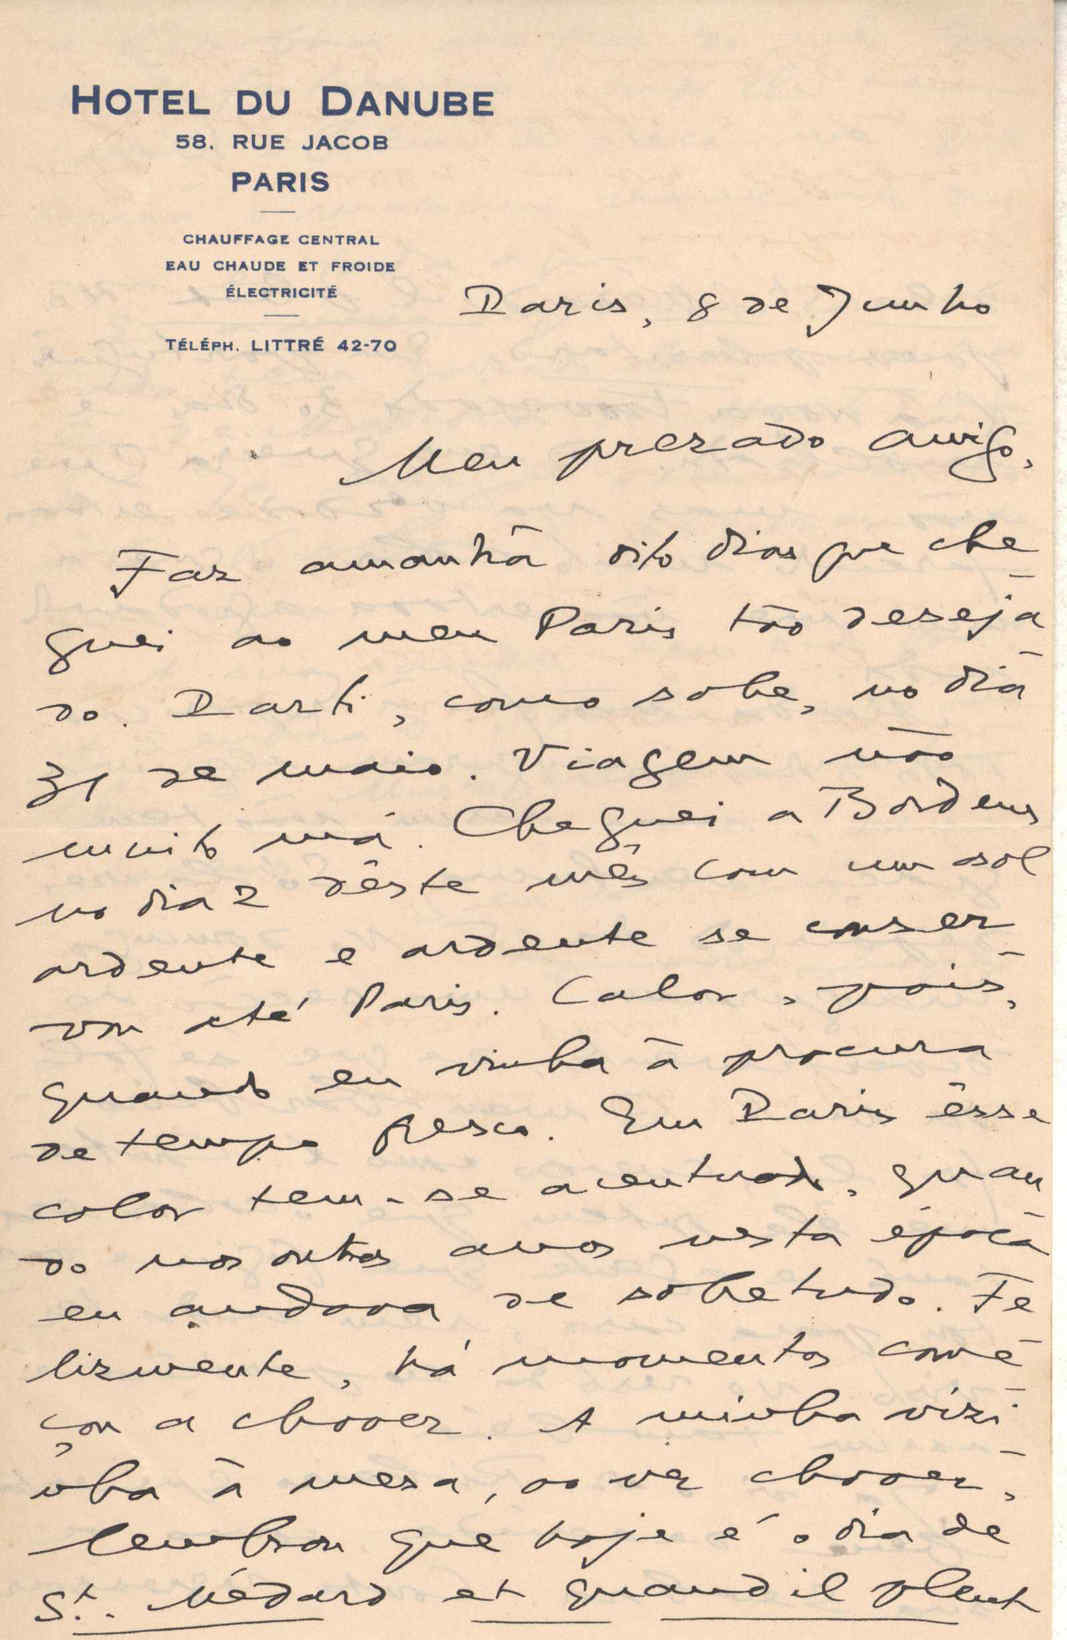 HOTEL DU DANUBE
58, RUE JACOB
PARIS
CHAUFFAGE CENTRAL
EAU CHAUDE ET FROIDE
ÉLECTRICITÉ
TÉLÉPH. LITTRÉ 42-70
Paris, 8 de Junho
Meu prezado amigo,
Faz amanhã oito dias que che
guei ao meu Paris tão deseja
do. Parti, como sabe, no dia
31 de maio. Viagem não
muito má. Cheguei a Bordeus
no dia 2 dêste mês com um sol
ardente e ardente se conser
vou até Paris. Calor, pois,
quando eu vinha à procura
de tempo fresco. Em Paris êsse
calor tem-se acentuado, quan
do nos outros anos nesta época
eu andava de sobretudo. Fe
lizmente, há momentos come
çou a chover. A minha vizi
nha à mesa, ao ver chover,
lembrou que hoje é o dia de
St. Médard et quand il pleut